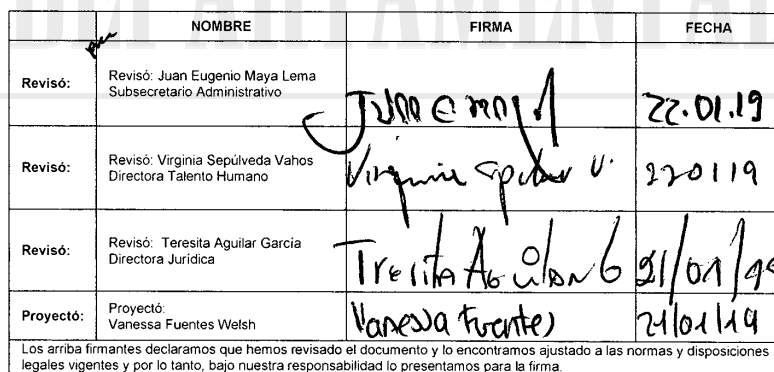 DEPARTAMENTAL
NOMBRE FIRMA FECHA
Revisó: Revisó: Juan Eugenio Maya Lema
Subsecretario Administrativo
22.01.19
Revisó: Revisó: Virginia Sepúlveda Vahos
Directora Talento Humano
Virginia V. 220119
Revisó: Revisó: Teresita Aguilar García
Directora Jurídica
Teresita Aguilar G 21/01/19
Proyectó: Proyectó:
Vanessa Fuentes Welsh
Vanessa Fuentes 21/01/19
Los arriba firmantes declaramos que hemos revisado el documento y lo encontramos ajustado a las normas y disposiciones
legales vigentes y por lo tanto, bajo nuestra responsabilidad lo presentamos para la firma.